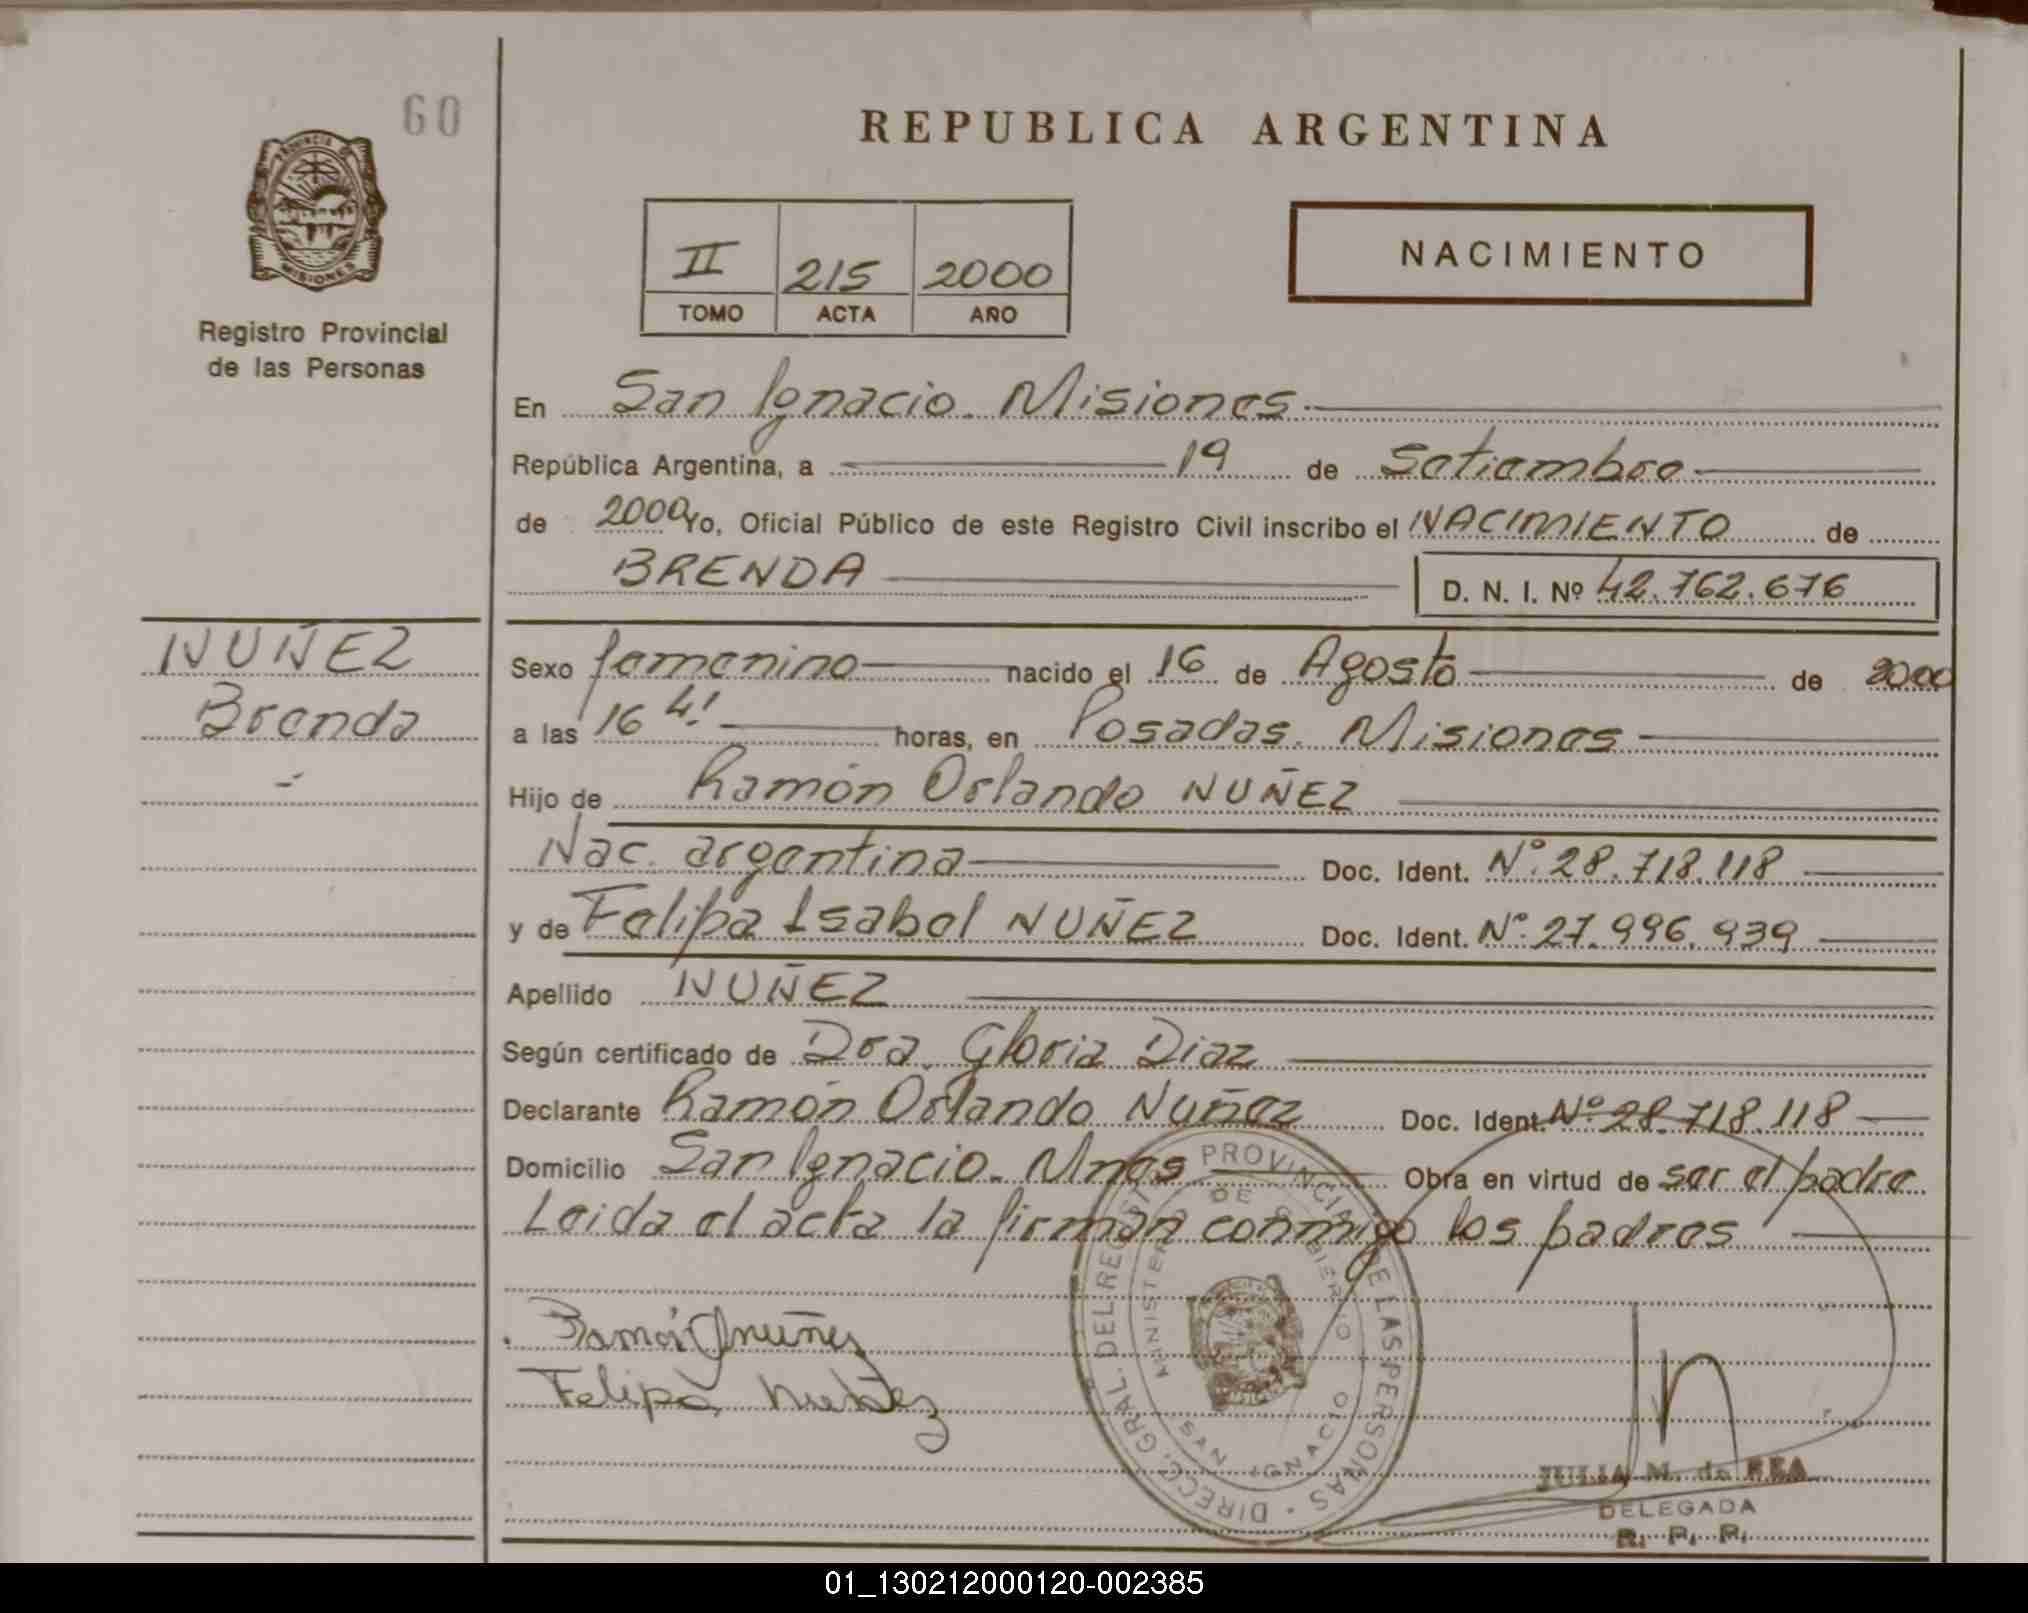 60
REPUBLICA ARGENTINA
PROVINCIA DE
MISIONES
Registro Provincial
de las Personas
II 215 2000
TOMO ACTA AÑO
NACIMIENTO
En San Ignacio. Misiones
República Argentina, a 19 de Setiembre
de 2000 Yo, Oficial Público de este Registro Civil inscribo el NACIMIENTO de
BRENDA D. N. I. Nº 42.762.676
NUÑEZ
Brenda
Sexo femenino nacido el 16 de Agosto de 2000
a las 16 horas, en Posadas. Misiones
Hijo de Ramón Orlando NUÑEZ
Nac. argentina Doc. Ident. Nº 28.718.118
y de Felipa Isabel NUÑEZ Doc. Ident. Nº 27.996.939
Apellido NUÑEZ
Según certificado de Dra. Gloria Diaz
Declarante Ramón Orlando Nuñez Doc. Ident. Nº 28.718.118
Domicilio San Ignacio. Mnes Obra en virtud de ser el padre
Leida el acta la firman conmigo los padres
DIRECC. GRAL. DEL REGISTRO PROVINCIAL DE LAS PERSONAS
MINISTERIO DE GOBIERNO
SAN IGNACIO
Ramón O nuñez
Felipa Nuñez
JULIA M. de REA
DELEGADA
R. P. P.
01_130212000120-002385